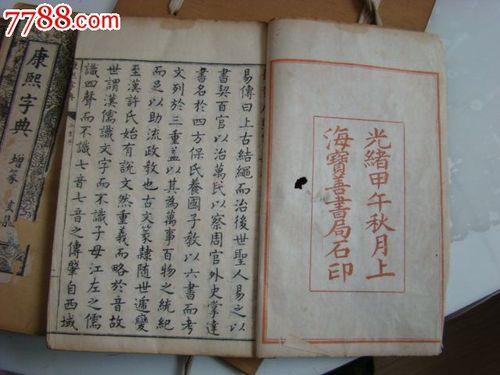 7788.com
中国收藏热线
光緒甲午秋月上
海寶善書局石印
易傳曰上古結繩而治後世聖人易之以
書契百官以治萬民以察周官外史掌達
書名於四方保氏養國子教以六書而考
文列於三重蓋以其為萬事百物之統紀
而足以助流政教也古文篆隸隨世遞變
至漢許氏始有說文然重義而略於音故
世謂漢儒識文字而不識子母江左之儒
識四聲而不識七音七音之傳肇自西域
康熙字典
增篆